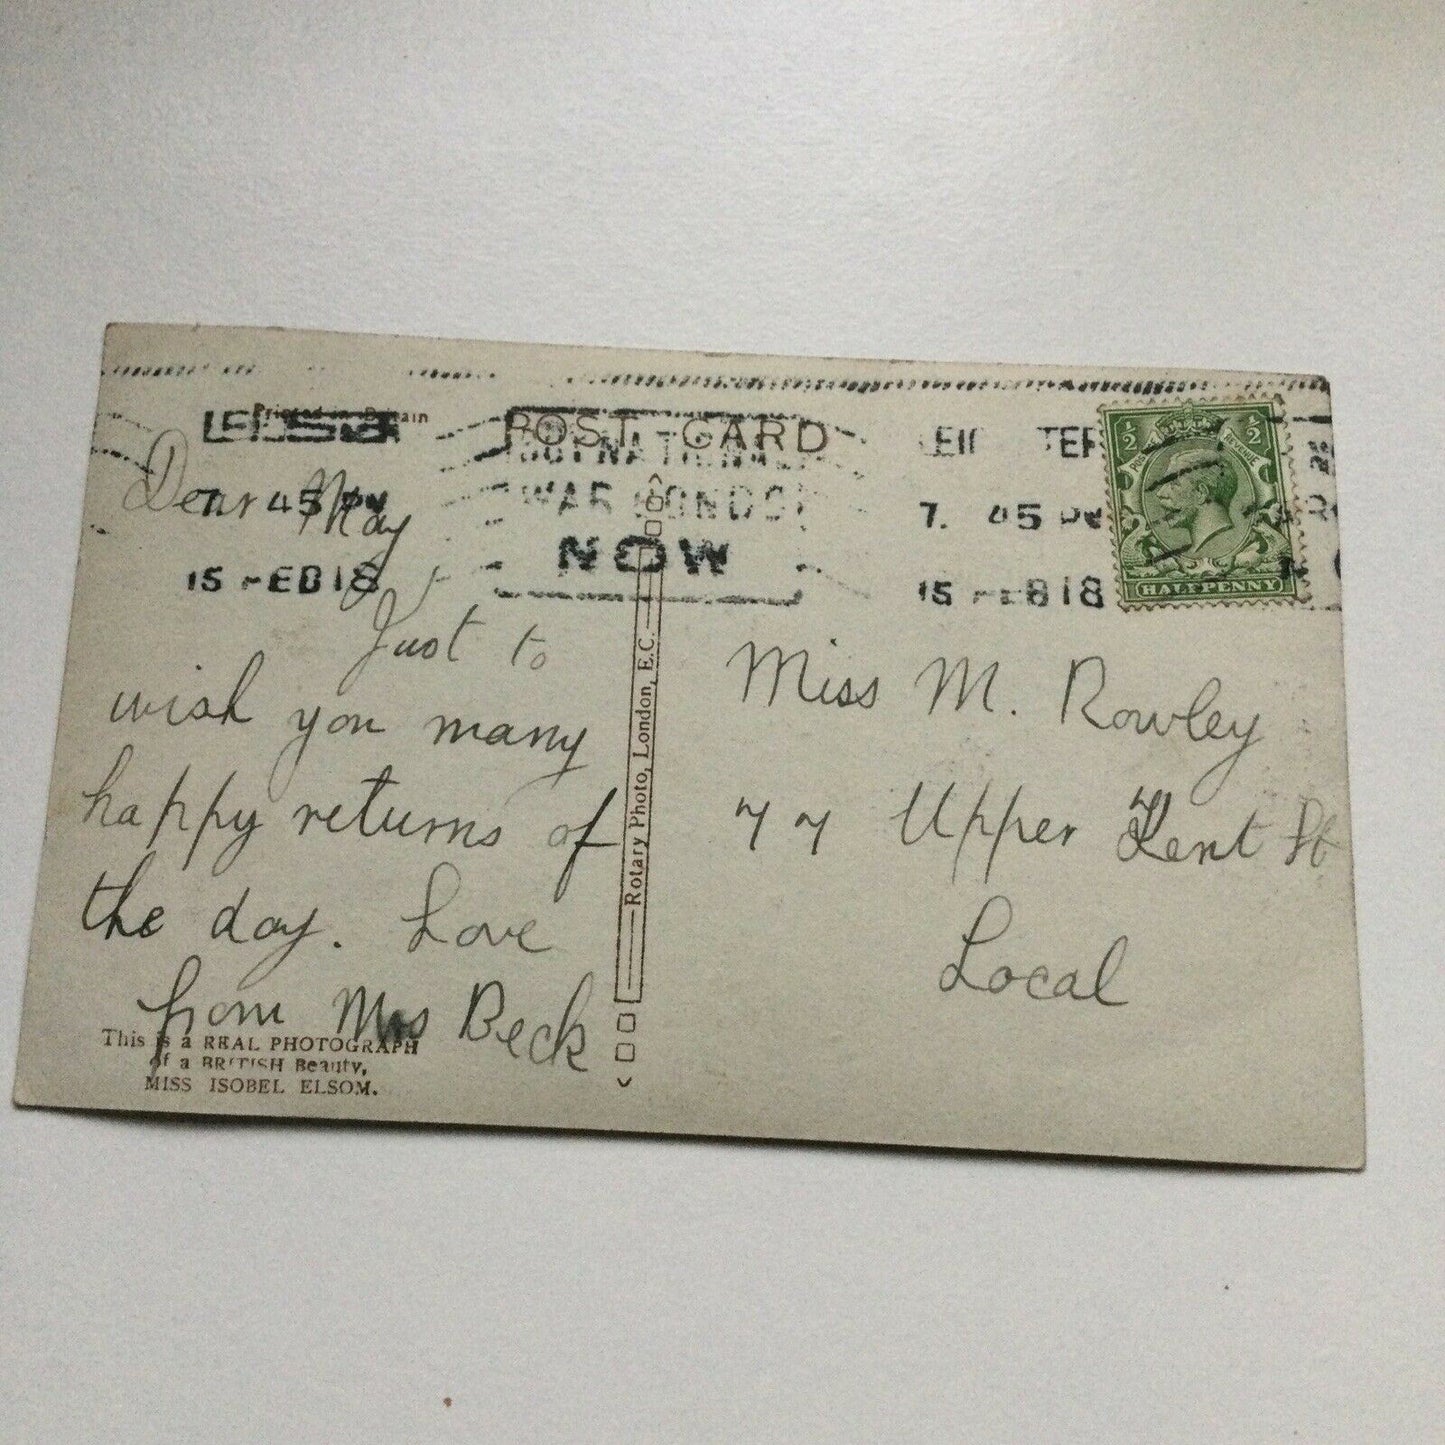 Printed in Britain
POST CARD
7. 45 PM
15 FEB 18
WAR BONDS
NOW
7. 45 PM
15 FEB 18
½ ½
HALFPENNY
Dear May
Just to
wish you many
happy returns of
the day. Love
from Mrs Beck
This is a REAL PHOTOGRAPH
of a BRITISH Beauty,
MISS ISOBEL ELSOM.
Rotary Photo, London, E.C.
Miss M. Rowley
77 Upper Kent St
Local